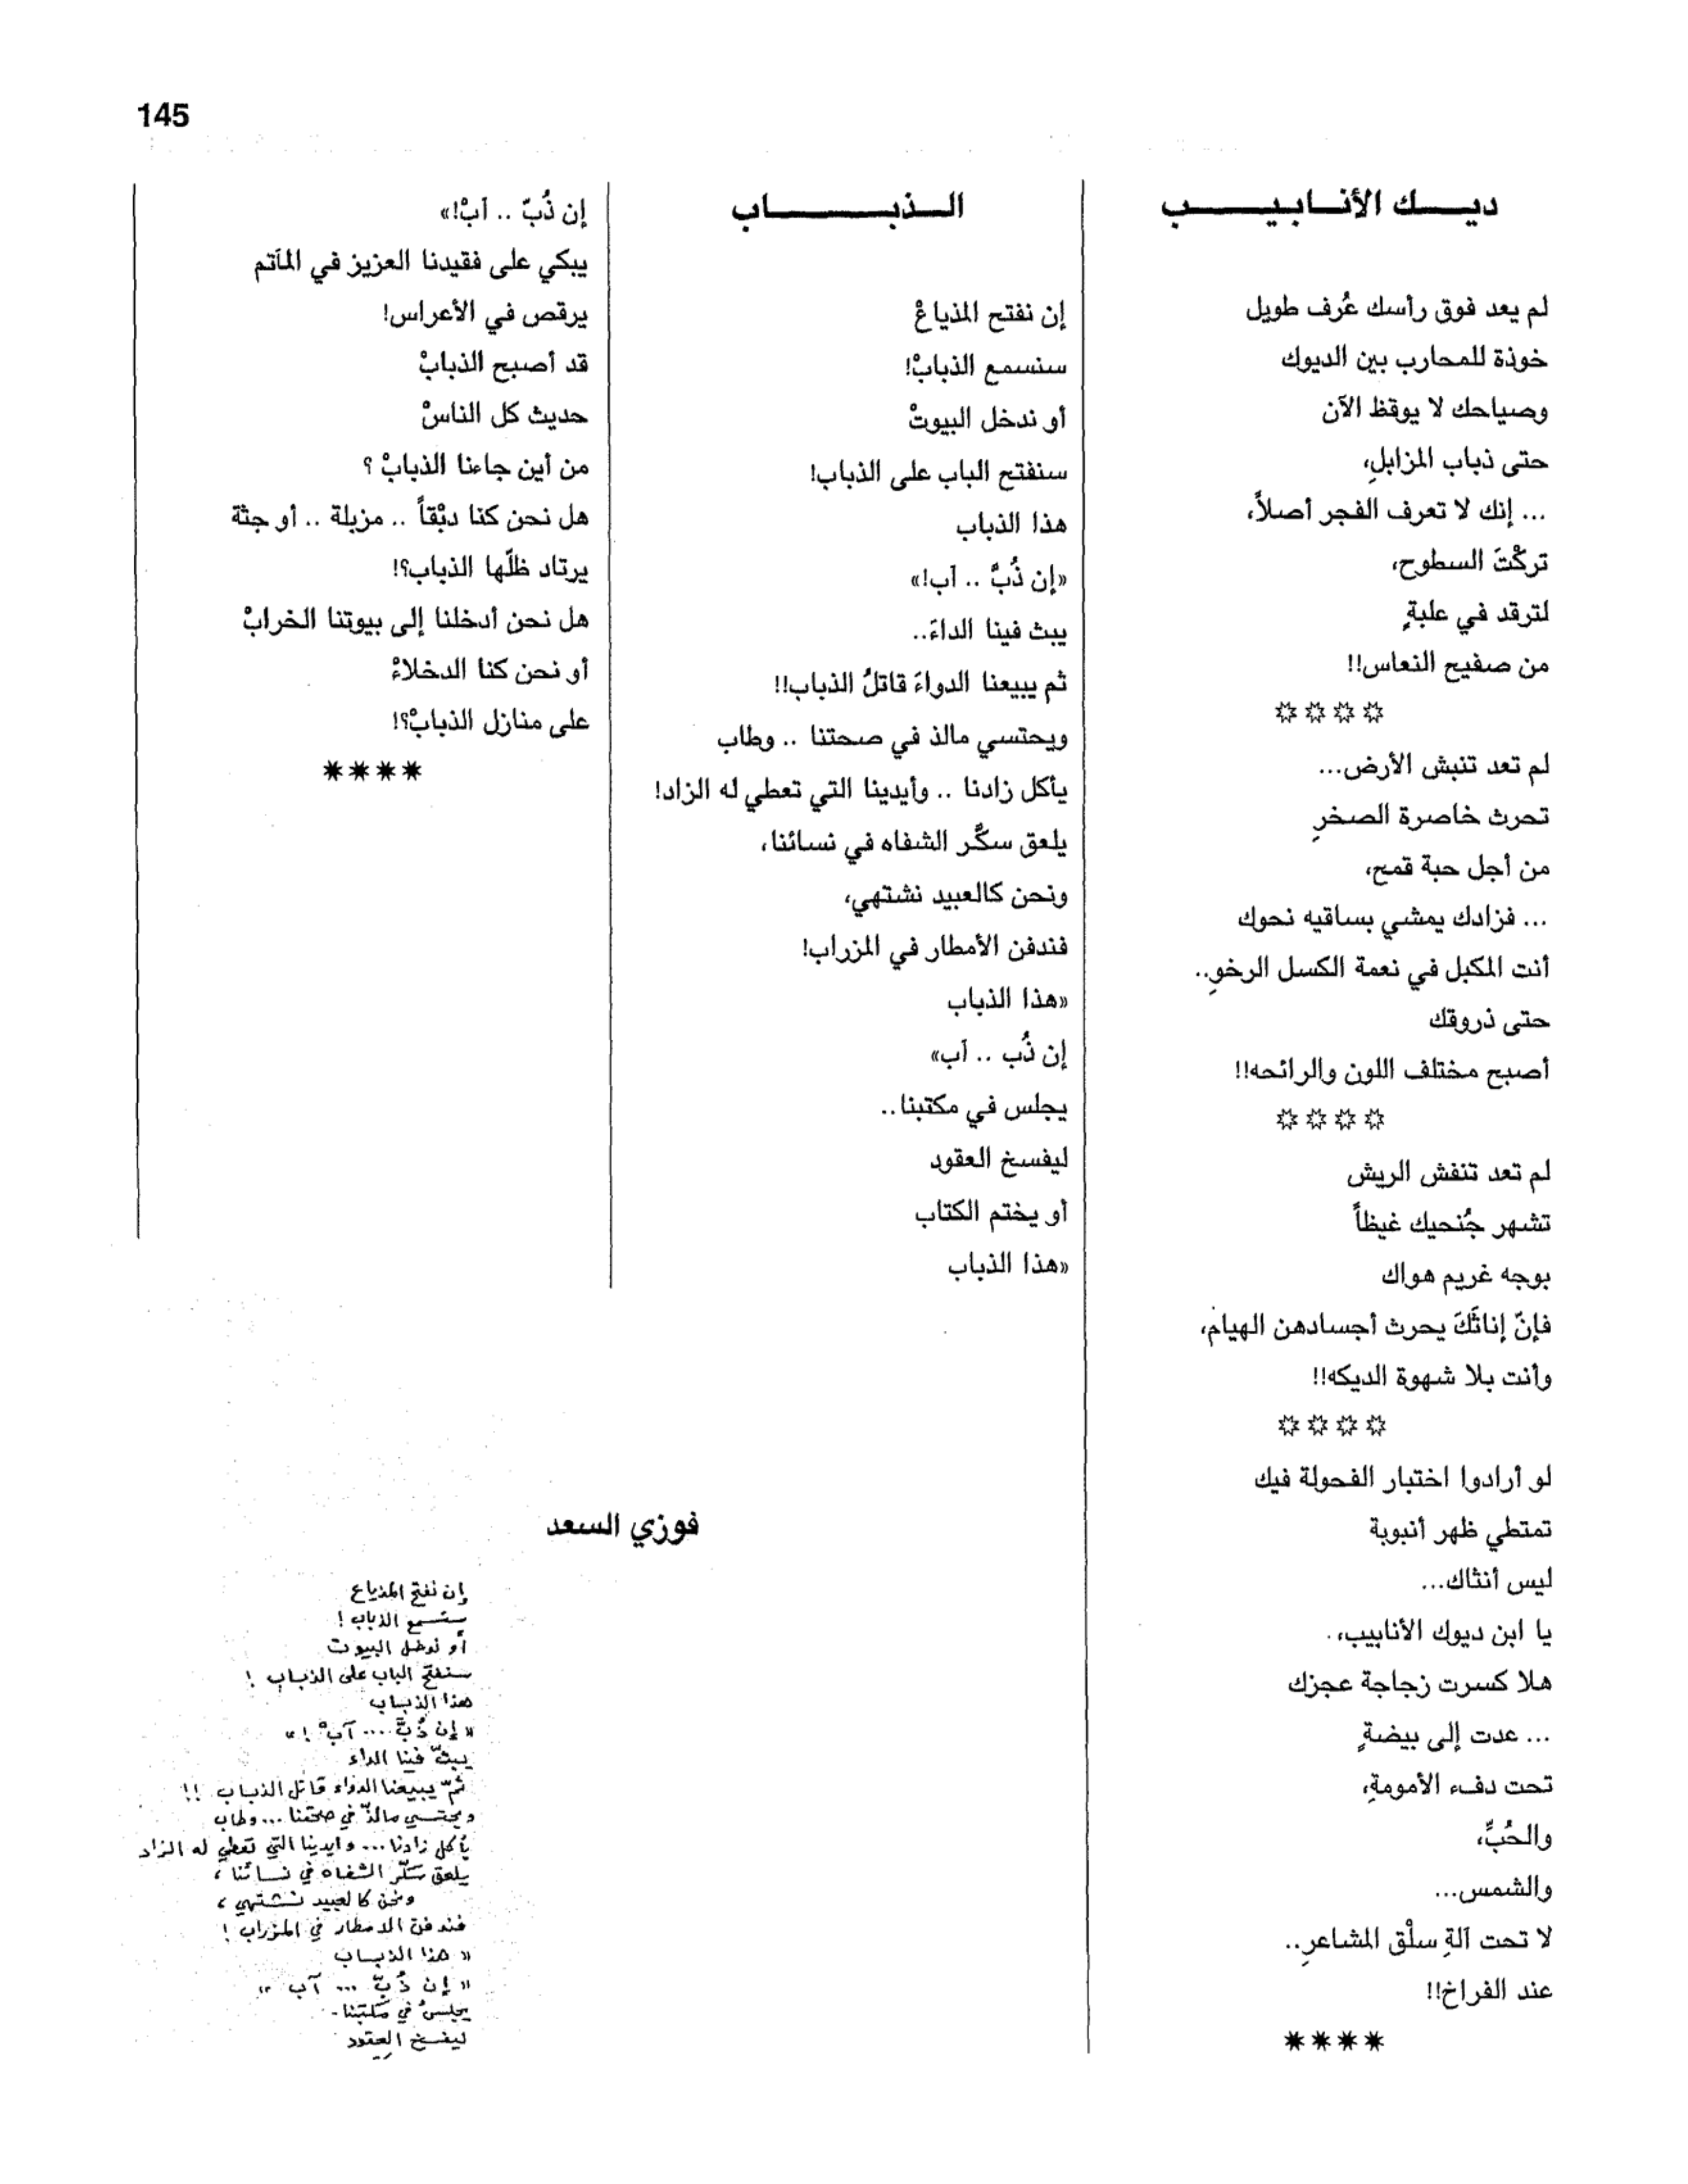 145
ديك الأنابيب
لم يعد فوق رأسك عُرف طويل
خوذة للمحارب بين الديوك
وصياحك لا يوقظ الآن
حتى ذباب المزابلِ،
... إنك لا تعرف الفجر أصلاً،
تركْتَ السطوح،
لترقد في علبةٍ
من صفيح النعاس!!
✵✵✵✵
لم تعد تنبش الأرض...
تحرث خاصرة الصخرِ
من أجل حبة قمح،
... فزادك يمشي بساقيه نحوك
أنت المكبل في نعمة الكسل الرخوِ..
حتى ذروقك
أصبح مختلف اللون والرائحه!!
✵✵✵✵
لم تعد تنفش الريش
تشهر جُنحيك غيظاً
بوجه غريم هواك
فإنّ إناثَكَ يحرث أجسادهن الهيام،
وأنت بلا شهوة الديكه!!
✵✵✵✵
لو أرادوا اختبار الفحولة فيك
تمتطي ظهر أنبوبة
ليس أنثاك...
يا ابن ديوك الأنابيب،
هلا كسرت زجاجة عجزك
... عدت إلى بيضةٍ
تحت دفء الأمومةِ،
والحُبِّ،
والشمس...
لا تحت آلةِ سلْق المشاعرِ..
عند الفراخ!!
✷✷✷✷
الذباب
إن نفتح المذياعْ
سنسمع الذبابْ!
أو ندخل البيوتْ
سنفتح الباب على الذباب!
هذا الذباب
«إن ذُبَّ .. آب!»
يبث فينا الداءَ..
ثم يبيعنا الدواءَ قاتلُ الذباب!!
ويحتسي مالذ في صحتنا .. وطاب
يأكل زادنا .. وأيدينا التي تعطي له الزاد!
يلعق سكَّر الشفاه في نسائنا،
ونحن كالعبيد نشتهي،
فندفن الأمطار في المزراب!
«هذا الذباب
إن ذُب .. آب»
يجلس في مكتبنا..
ليفسخ العقود
أو يختم الكتاب
«هذا الذباب
إن ذُبّ .. آبْ!»
يبكي على فقيدنا العزيز في المآتم
يرقص في الأعراس!
قد أصبح الذبابْ
حديث كل الناسْ
من أين جاءنا الذبابْ ؟
هل نحن كنا دبْقاً .. مزبلة .. أو جثة
يرتاد ظلّها الذباب؟!
هل نحن أدخلنا إلى بيوتنا الخرابْ
أو نحن كنا الدخلاءْ
على منازل الذبابْ؟!
✷✷✷✷
فوزي السعد
إن نفتح المذياع
سنسمع الذباب !
أو ندخل البيوت
سنفتح الباب على الذباب !
هذا الذباب
« إن ذُبَّ ... آبْ ! »
يبثّ فينا الداء
ثمّ يبيعنا الدواء قاتل الذباب !!
ويحتسي مالذّ في صحتنا ... وطاب
يأكل زادنا ... وايدينا التي تعطي له الزاد
يلعق سكّر الشفاه في نسائنا ،
ونحن كالعبيد نشتهي ،
فندفن الامطار في المزراب !
« هذا الذباب
« إن ذُبّ ... آب »
يجلسُ في مكتبنا -
ليفسخ العقود